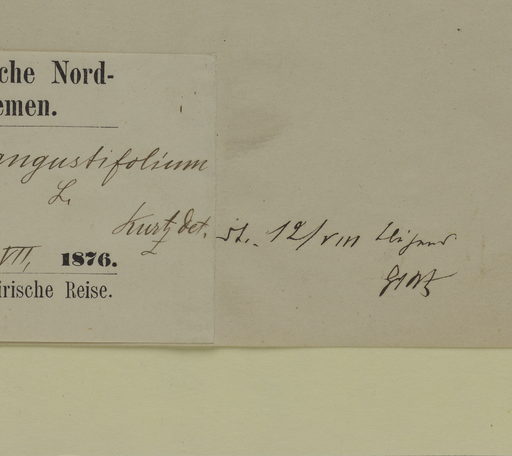 che Nord-
emen.
angustifolium
L.
Kurtz det. 12/VIII
VII, 1876.
irische Reise.